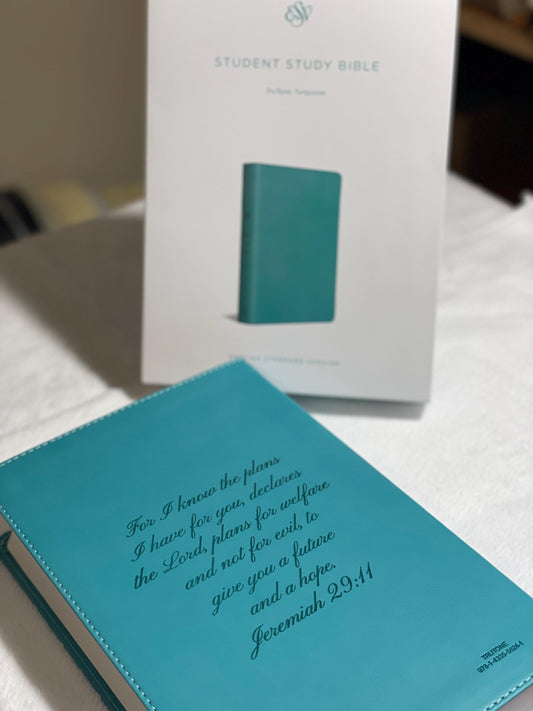 ESV
STUDENT STUDY BIBLE
TruTone, Turquoise
ENGLISH STANDARD VERSION
For I know the plans
I have for you, declares
the Lord, plans for welfare
and not for evil, to
give you a future
and a hope.
Jeremiah 29:11
TRUTONE